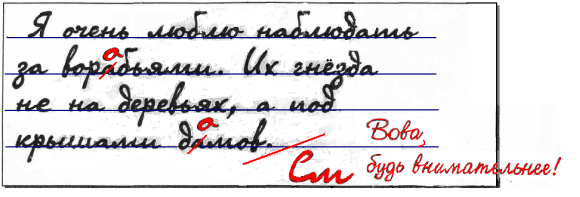 Я очень люблю наблюдать
а
за ворабьями. Их гнёзда
не на деревьях, а под
а
крышами дамов.
См
Вова,
будь внимательнее!